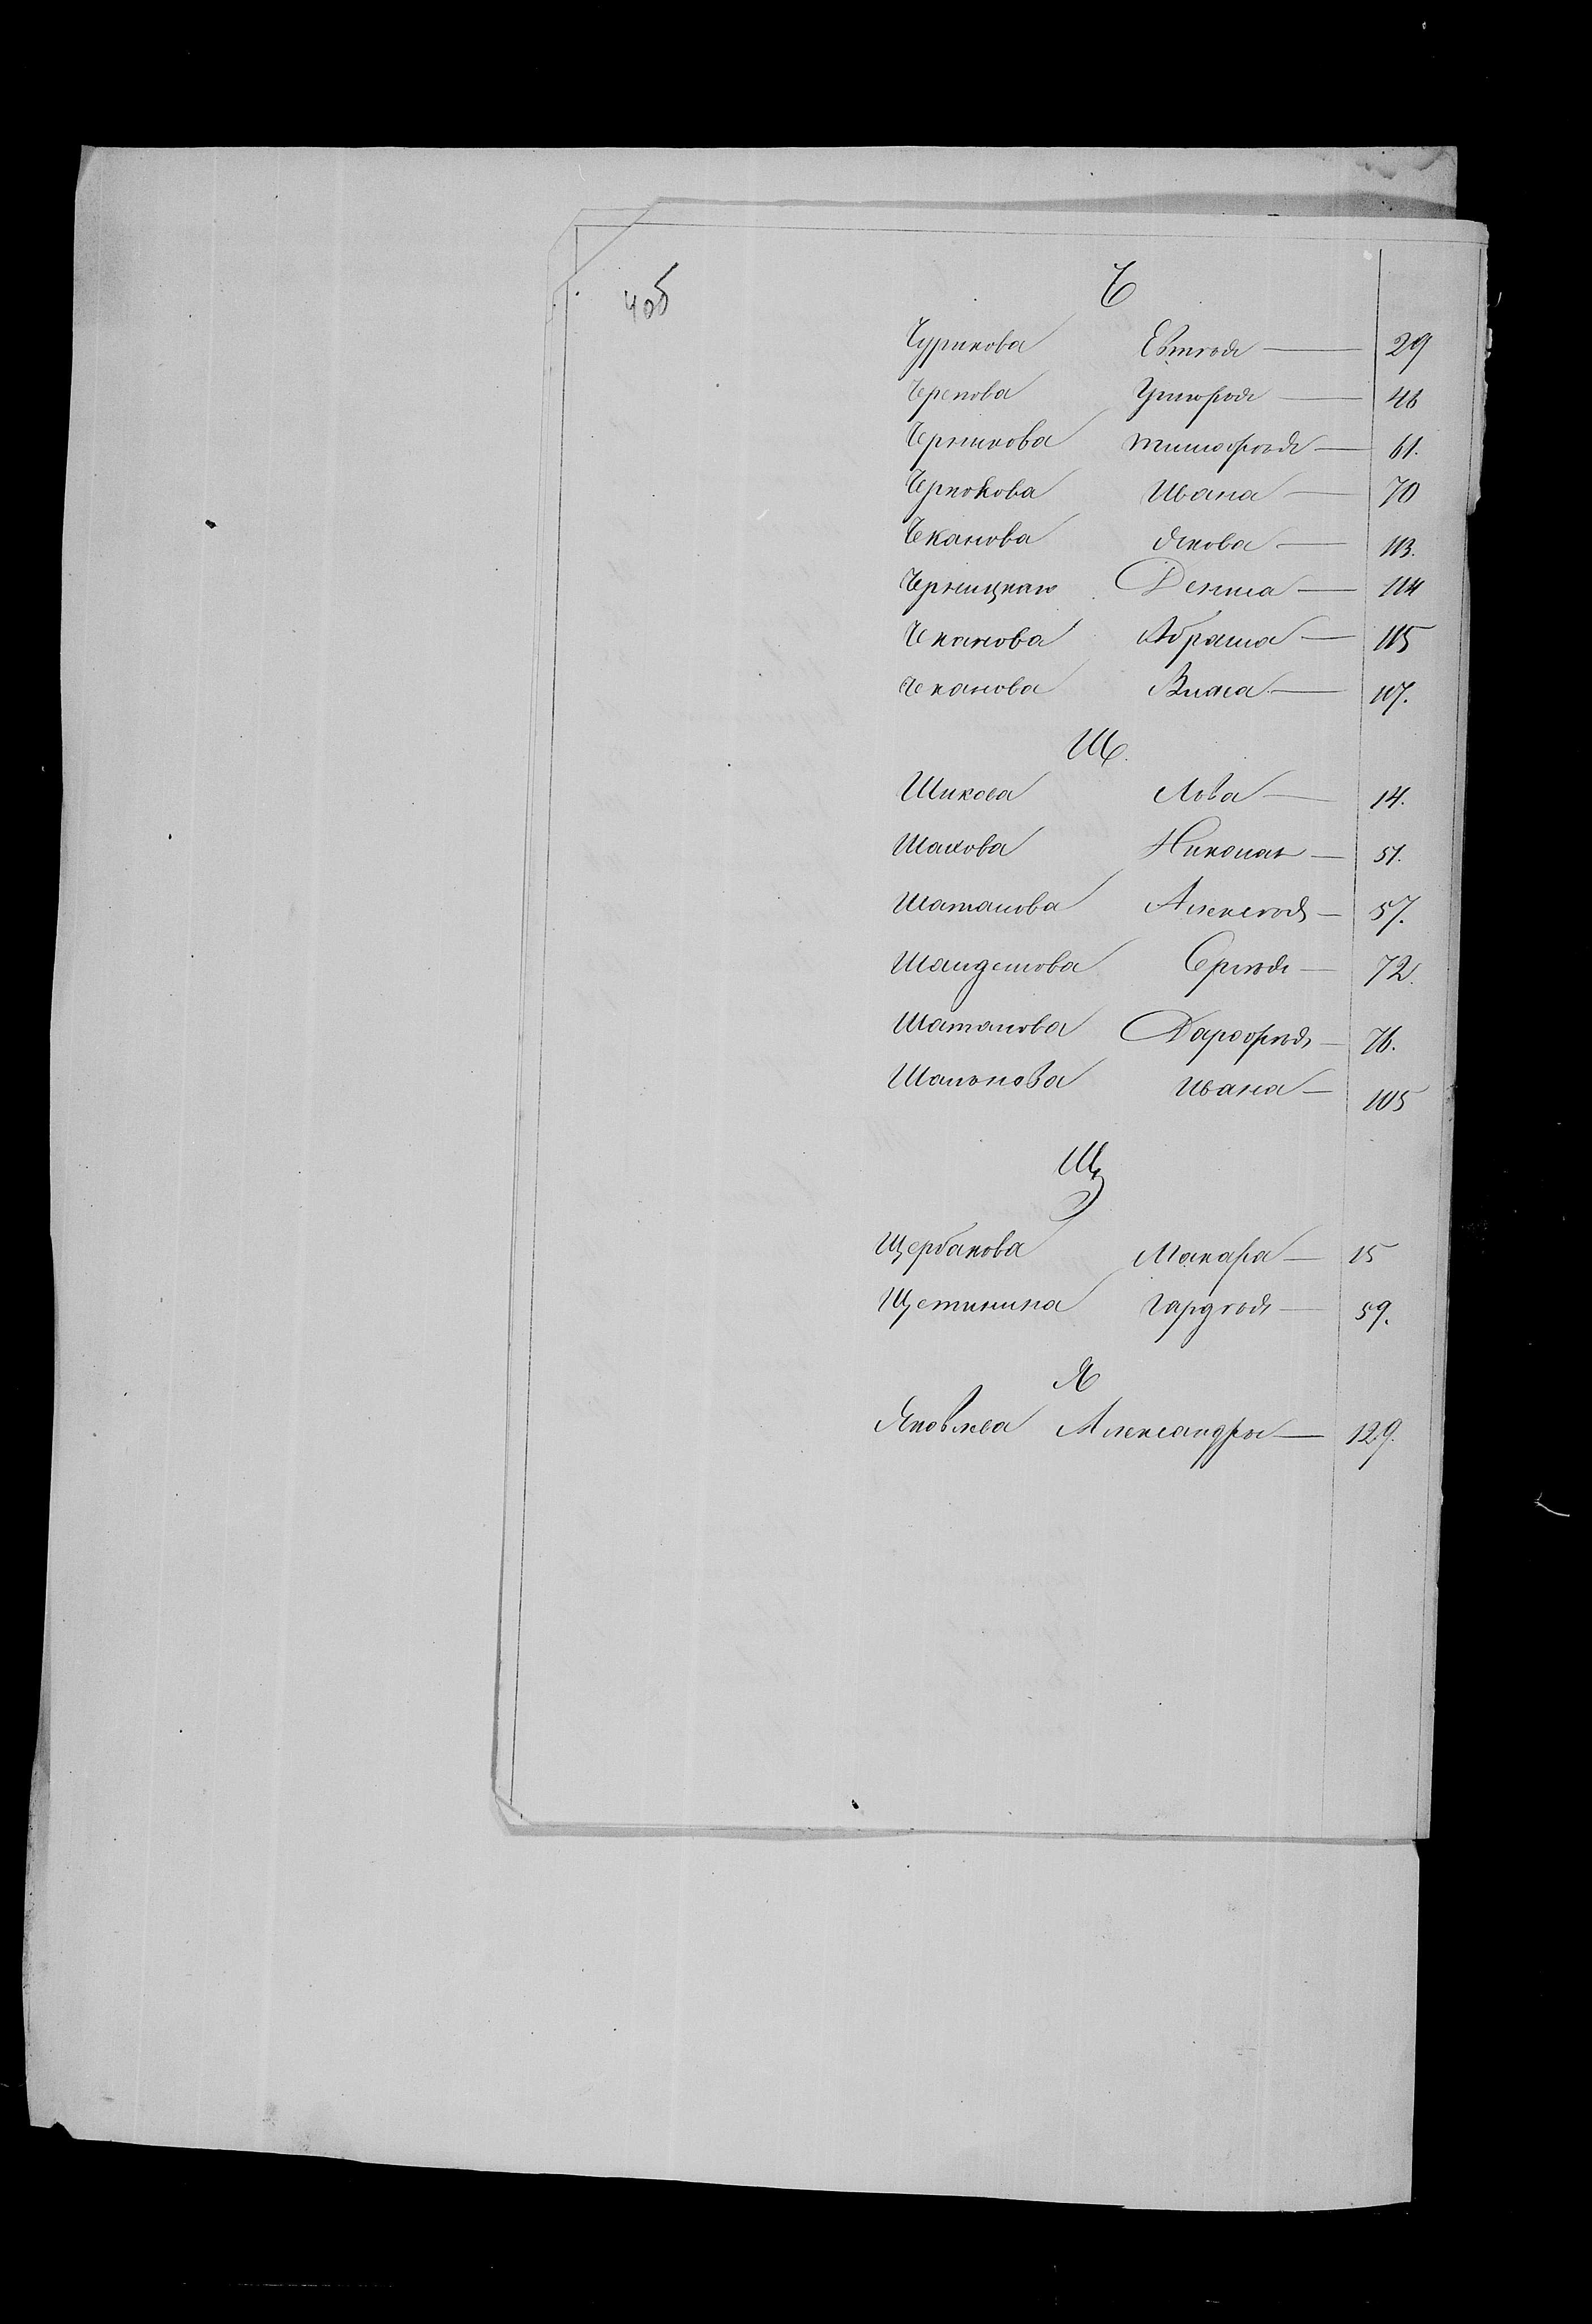 4об
Ч
Чурикова Евтѣя — 29
Черепова Григорья — 46
Черникова Тимофѣя — 61.
Чернокова Ивана — 70
Чеканова Якова — 113.
Черницкаго Дениса — 114
Чеканова Абрама — 115
Чеканова — 117.
Ш.
Шикова Льва — 14.
Шахова Николая — 51.
Шаталова Алексѣя — 57.
Сергѣя — 72.
Шаталова Дорофѣя — 76.
Шальнова Ивана — 105
Щ
Щербакова Макара — 15
Щетинина Гардѣя — 59.
Я
Яковлева Александры — 129.